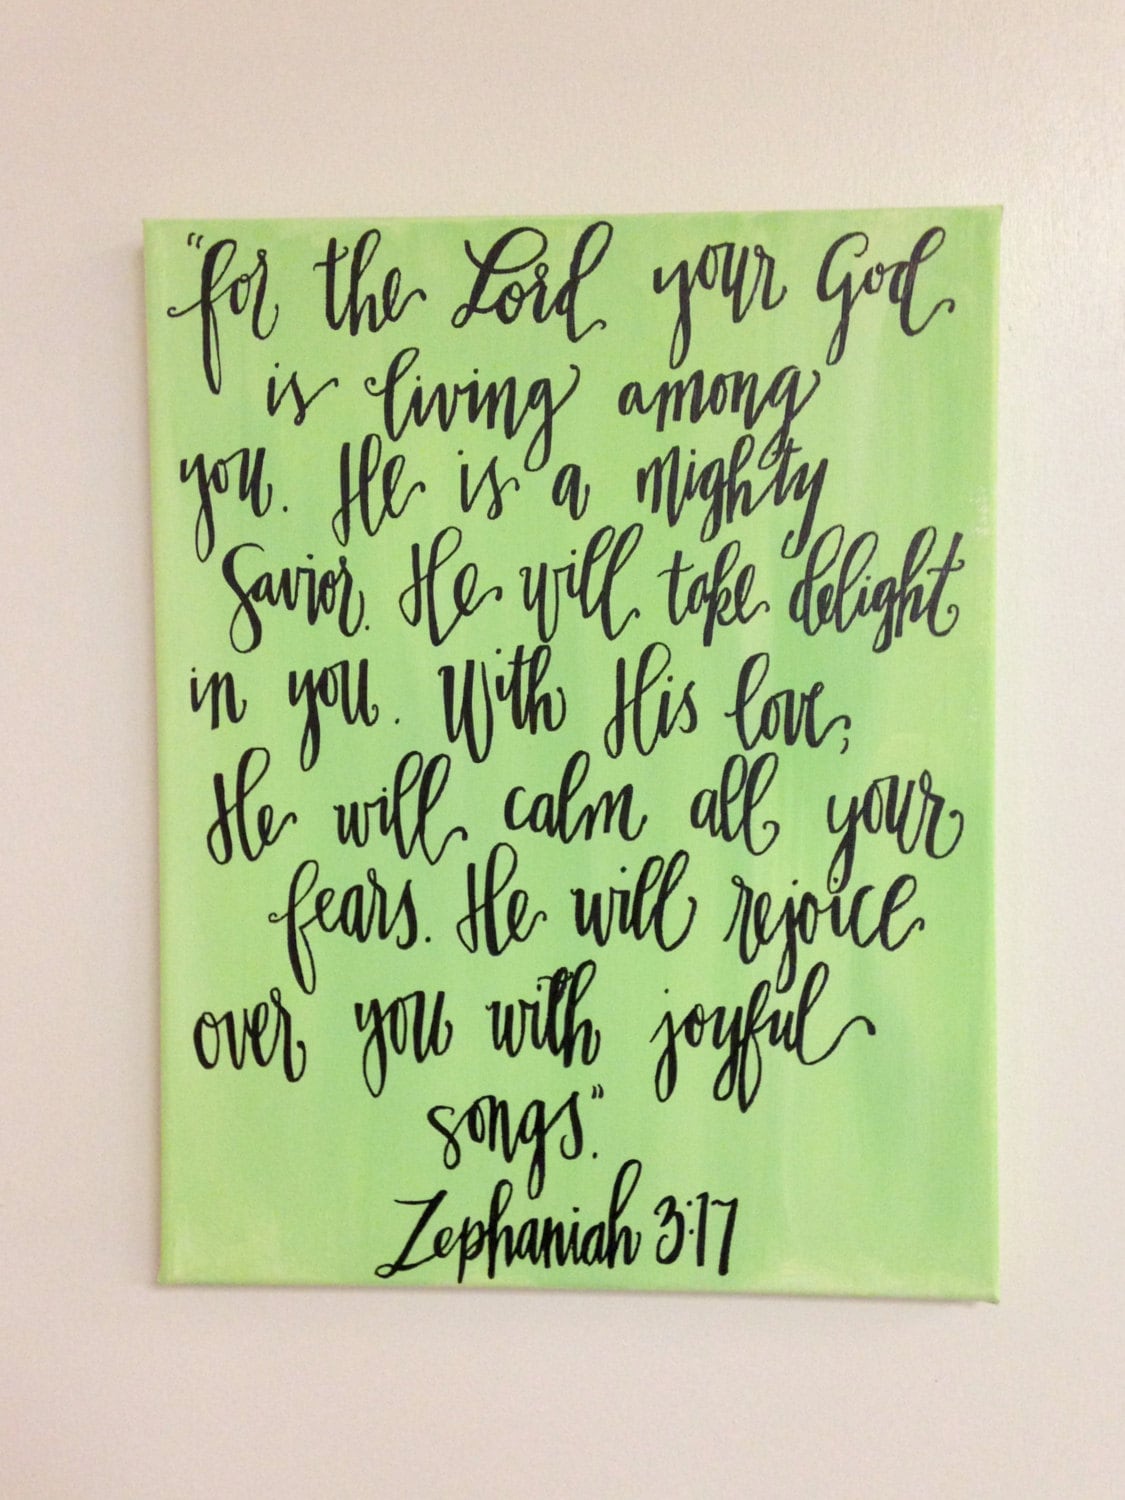 "for the Lord your God
is living among
you. He is a mighty
Savior. He will take delight
in you. With His love;
He will calm all your
fears. He will rejoice
over you with joyful
songs."
Zephaniah 3:17